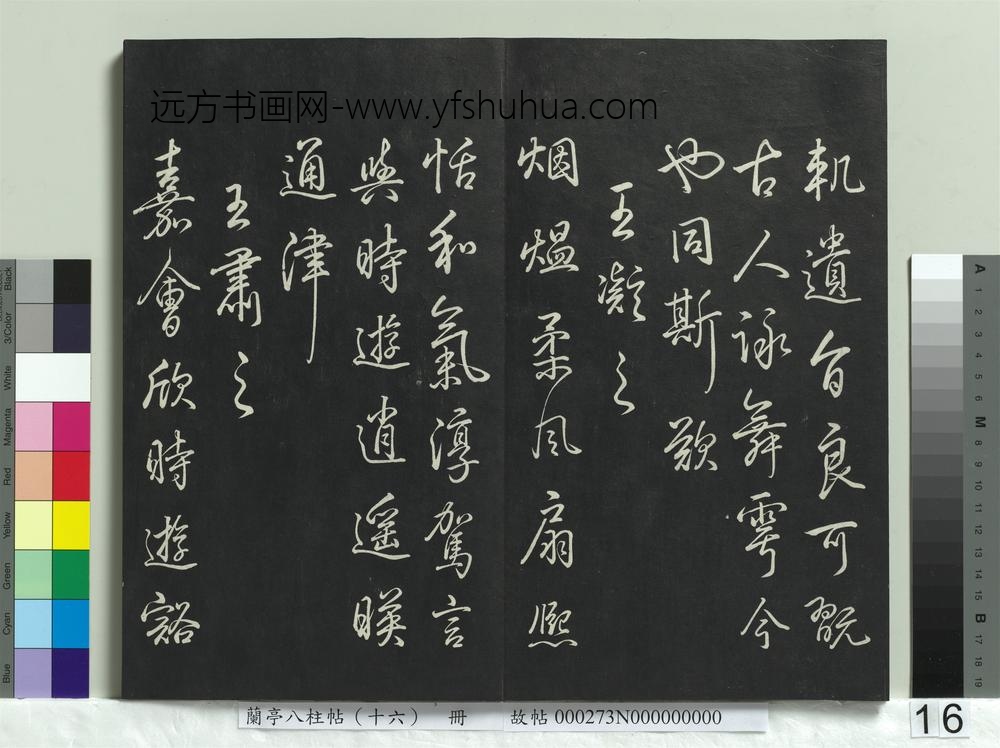 远方书画网-www.yfshuhua.com
軌遺音良可翫
古人詠舞雩今
也同斯歎
王凝之
烟熅柔風扇熈
恬和氣淳駕言
與時遊逍遙暎
通津
王肅之
嘉會欣時遊豁
蘭亭八柱帖（十六） 冊 故帖 000273N000000000
16
Black
3/Color
White
Magenta
Red
Yellow
Green
Cyan
Blue
A
1
2
3
4
5
6
M
8
9
10
11
12
13
14
15
B
17
18
19